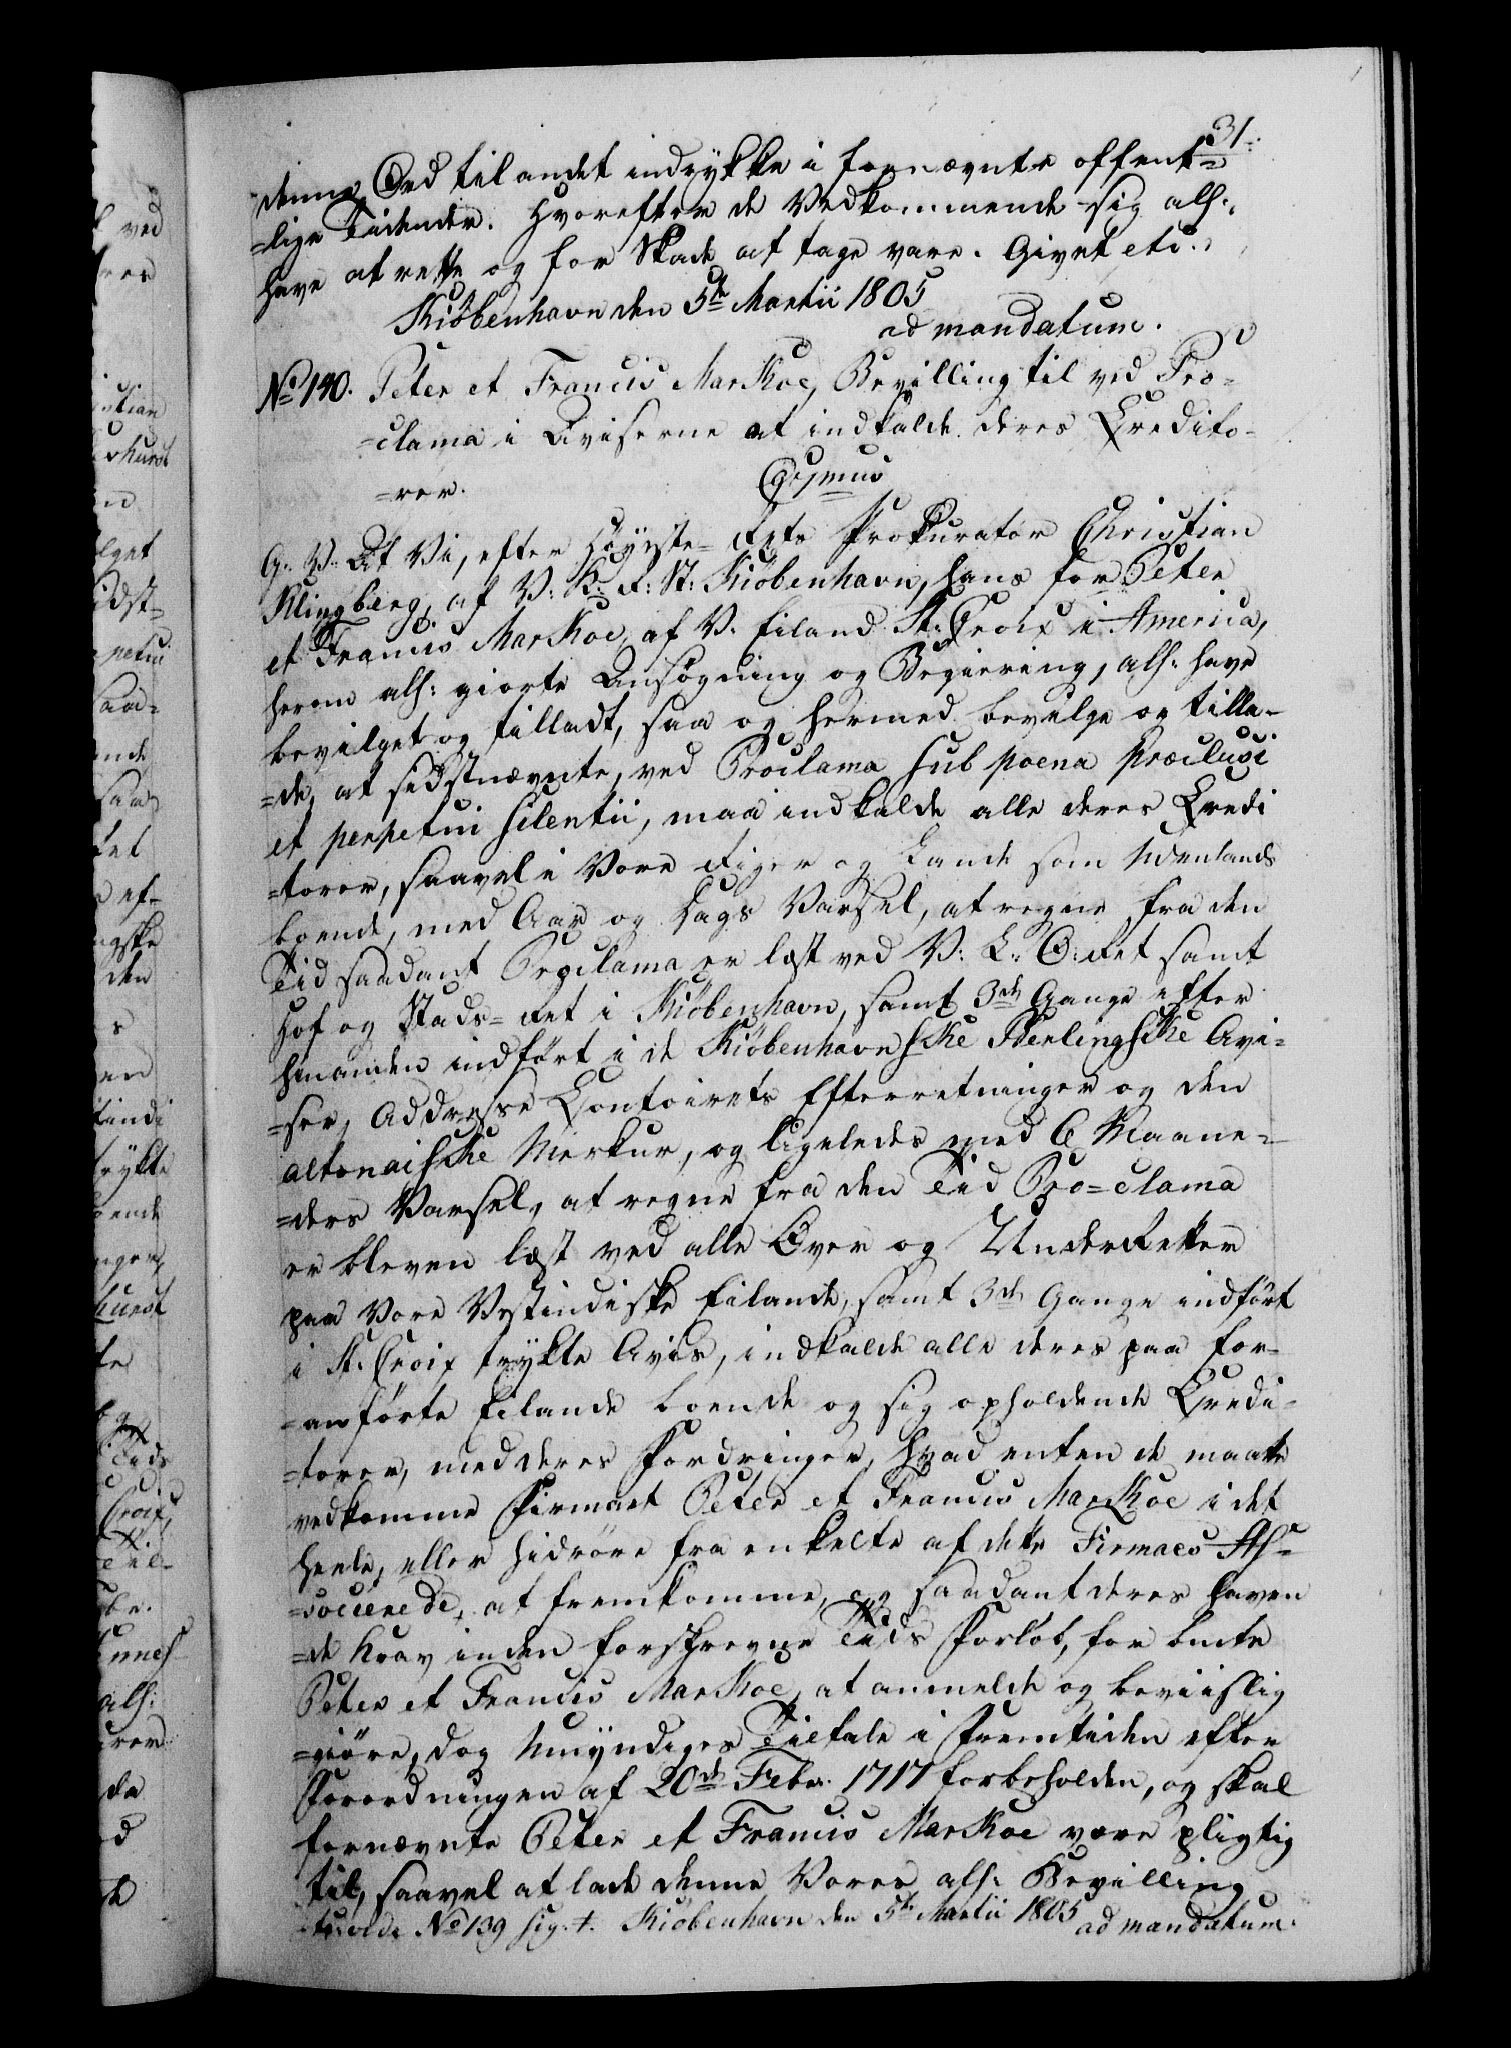 31.
denne Ord til andet indrykke i fornævnte offent=
=lige Tidender. Hvorefter de Vedkommende sig all:
have at rette og for Skade at tage vare. Givet etc.
Kiöbenhavn den 5te Martii 1805
ad mandatum.
No 140. Peter et Francis MarKoe, Bevilling til ved Pro=
=clama i Aviserne at indkalde deres Credito=
=rer.
G: V: At Vi, efter Höyste= Rets Prokurator Christian
Klingberg, af V: K: R: St: Kiöbenhavn, hans for Peter
et Francis MarKoe, af V. Eiland St: Croix i America,
herom all: giorte Ansøgning og Begiering, all: have
bevilget og tilladt, saa og hermed bevilge og tilla=
=de, at sidstnævnte, ved Proclama sub poena præclusi
et perpetui silentii, maa indkalde alle deres Credi
=torer, saavel i Vore Riger og Lande som Udenlands
boende, med Aar og Dags Varsel, at regne fra den
Tid saadant Proclama er læst ved V: L: O: Ret samt
Hof og Stads= Ret i Kiöbenhavn, samt 3de Gange efter
hinanden indført i de Kiöbenhavnske Berlingske Avi=
=ser, Addresse Contoirets Efterretninger og den
altonaiske Merkur, og ligeledes med 6 Maane=
=ders Varsel, at regne fra den Tid Pro=clama
er bleven læst ved alle Over og UnderRetter
paa Vore Vestindiske Eilande, samt 3de Gange indført
i St: Croix trykte Avis, indkalde alle deres paa for=
=anførte Eilande boende og sig opholdende Credi=
=torer, med deres Fordringer, hvad enten de maatte
vedkomme Firmaet Peter et Francis MarKoe i det
heele, eller hidrøre fra enkelte af dette Firmaes As=
=socierede, at fremkomme, og saadant deres haven
=de Krav inden forskrevne Tids Forløb, for bmte
Peter et Francis MarKoe, at anmelde og beviislig
=giöre, dog Umyndiges Tiltale i Fremtiden efter
Forordningen af 20de Febr. 1717 forbeholden, og skal
fornævnte Peter et Francis MarKoe være pligtig
til, saavel at lade denne Vores all: Bevilling
No 139 sig. t. Kiöbenhavn den 5te Martii 1805
ad mandatum.